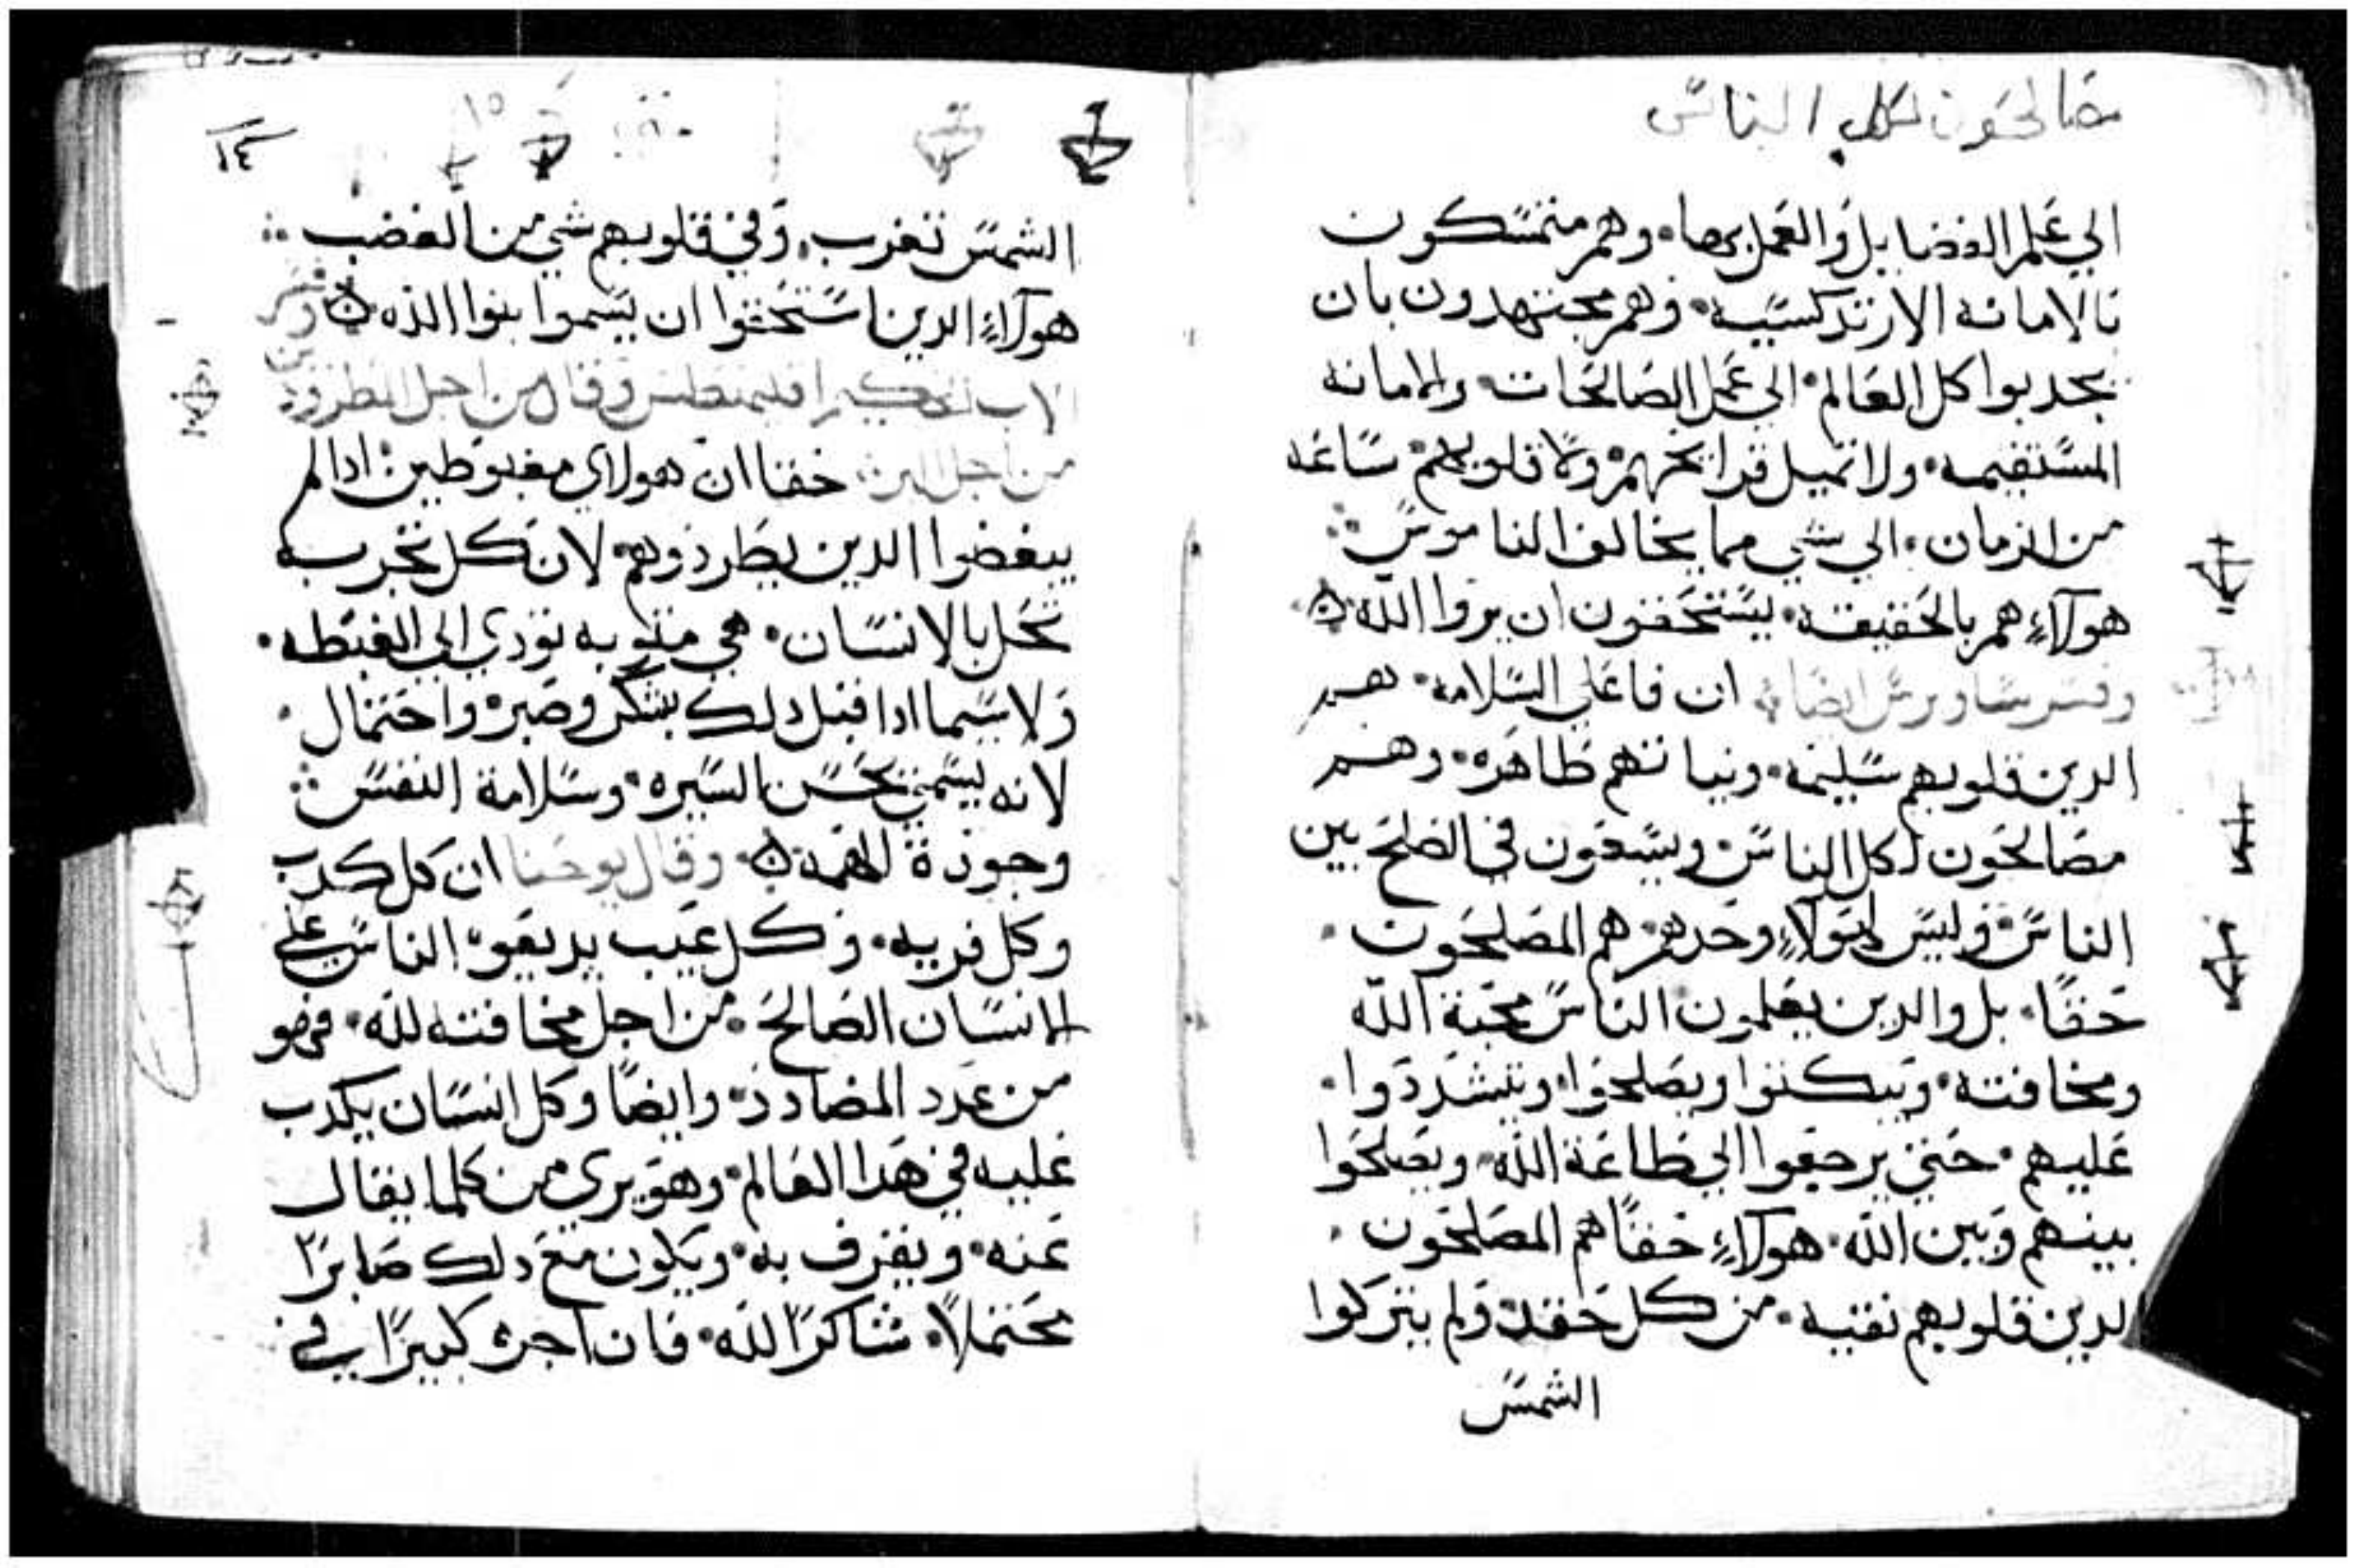 مصالحون لكل الناس
الي علم الفضايل والعمل بها وهم متمسكون
بالامانه الارتدكسيه وهم مجتهدون بان
يجدبوا كل العالم الي عمل الصالحات والامانه
المستقيمه ولا تميل قرايحهم ولا قلوبهم ساعه
من الزمان الي شي مما يخالف الناموس
هولاء هم بالحقيقه يستحقون ان يروا الله
وفسر ساويرس ايضا ان فاعلي السلامه هم
الدين قلوبهم سليمه ونياتهم طاهره وهم
مصالحون لكل الناس ويسعون في الصلح بين
الناس وليس هولاء وحدهم هم المصلحون
حقا بل والدين يعلمون الناس محبة الله
ومخافته ويبكتوا ويصلحوا ويتشددوا
عليهم حتي يرجعوا الي طاعة الله ويصلحوا
بينهم وبين الله هولاء حقا هم المصلحون
لدين قلوبهم نقيه من كل حقد ولم يتركوا
الشمس
١٥
١٤
الشمس تغرب وفي قلوبهم شي من الغضب
هولاء الدين استحقوا ان يسموا بنوا الله
الاب وقال من اجل المطرودين
من اجل البر حقا ان هولاي مغبوطين ادا لم
يبغضوا الدين يطردوهم لان كل تجربه
تحل بالانسان هي تودي الي الغبطه
ولا سيما ادا قبل دلك بشكر وصبر واحتمال
لانه يسمي بحسن السيره وسلامة النفس
وجودة الهمه وقال يوحنا ان كل كدب
وكل فريه وكل عيب يديعوه الناس علي
الانسان الصالح من اجل مخافته لله فهو
من عدد المضادد وايضا وكل انسان يكدب
عليه في هدا العالم وهو بري من كلما يقال
عنه ويقرف به ويكون مع دلك صابرا
محتملا شاكرا لله فان اجره كبيرا في